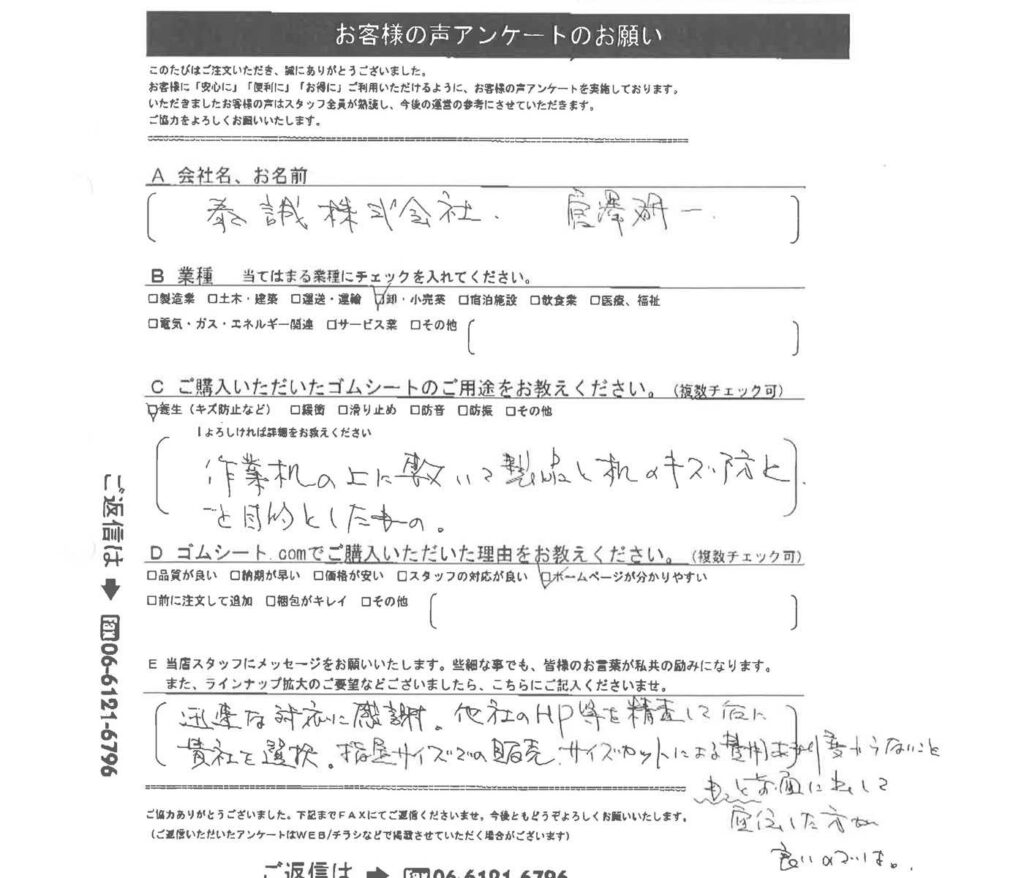 お客様の声アンケートのお願い
このたびはご注文いただき、誠にありがとうございました。
お客様に「安心に」「便利に」「お得に」ご利用いただけるように、お客様の声アンケートを実施しております。
いただきましたお客様の声はスタッフ全員が熟読し、今後の運営の参考にさせていただきます。
ご協力をよろしくお願いいたします。
A 会社名、お名前
泰誠株式会社. 宮澤研一.
B 業種 当てはまる業種にチェックを入れてください。
□製造業 □土木・建築 □運送・運輸 ☑卸・小売業 □宿泊施設 □飲食業 □医療、福祉
□電気・ガス・エネルギー関連 □サービス業 □その他
C ご購入いただいたゴムシートのご用途をお教えください。(複数チェック可)
☑養生(キズ防止など) □緩衝 □滑り止め □防音 □防振 □その他
よろしければ詳細をお教えください
作業机の上に敷いて製品と机のキズ防止
を目的としたもの。
D ゴムシート.comでご購入いただいた理由をお教えください。(複数チェック可)
□品質が良い □納期が早い □価格が安い □スタッフの対応が良い ☑ホームページが分かりやすい
□前に注文して追加 □梱包がキレイ □その他
E 当店スタッフにメッセージをお願いいたします。些細な事でも、皆様のお言葉が私共の励みになります。
また、ラインナップ拡大のご要望などございましたら、こちらにご記入くださいませ。
迅速な対応に感謝。他社のHP等を精査して
貴社を選択。指定サイズでの販売、サイズカットによる費用があまり変わらないこと
もっと前面に出して
宣伝した方が
良いのでは。
ご協力ありがとうございました。下記までFAXにてご返信くださいませ。今後ともどうぞよろしくお願いいたします。
(ご返信いただいたアンケートはWEB/チラシなどで掲載させていただく場合がございます)
ご返信は ➡ FAX 06-6121-6796
ご返信は ➡ FAX 06-6121-6796